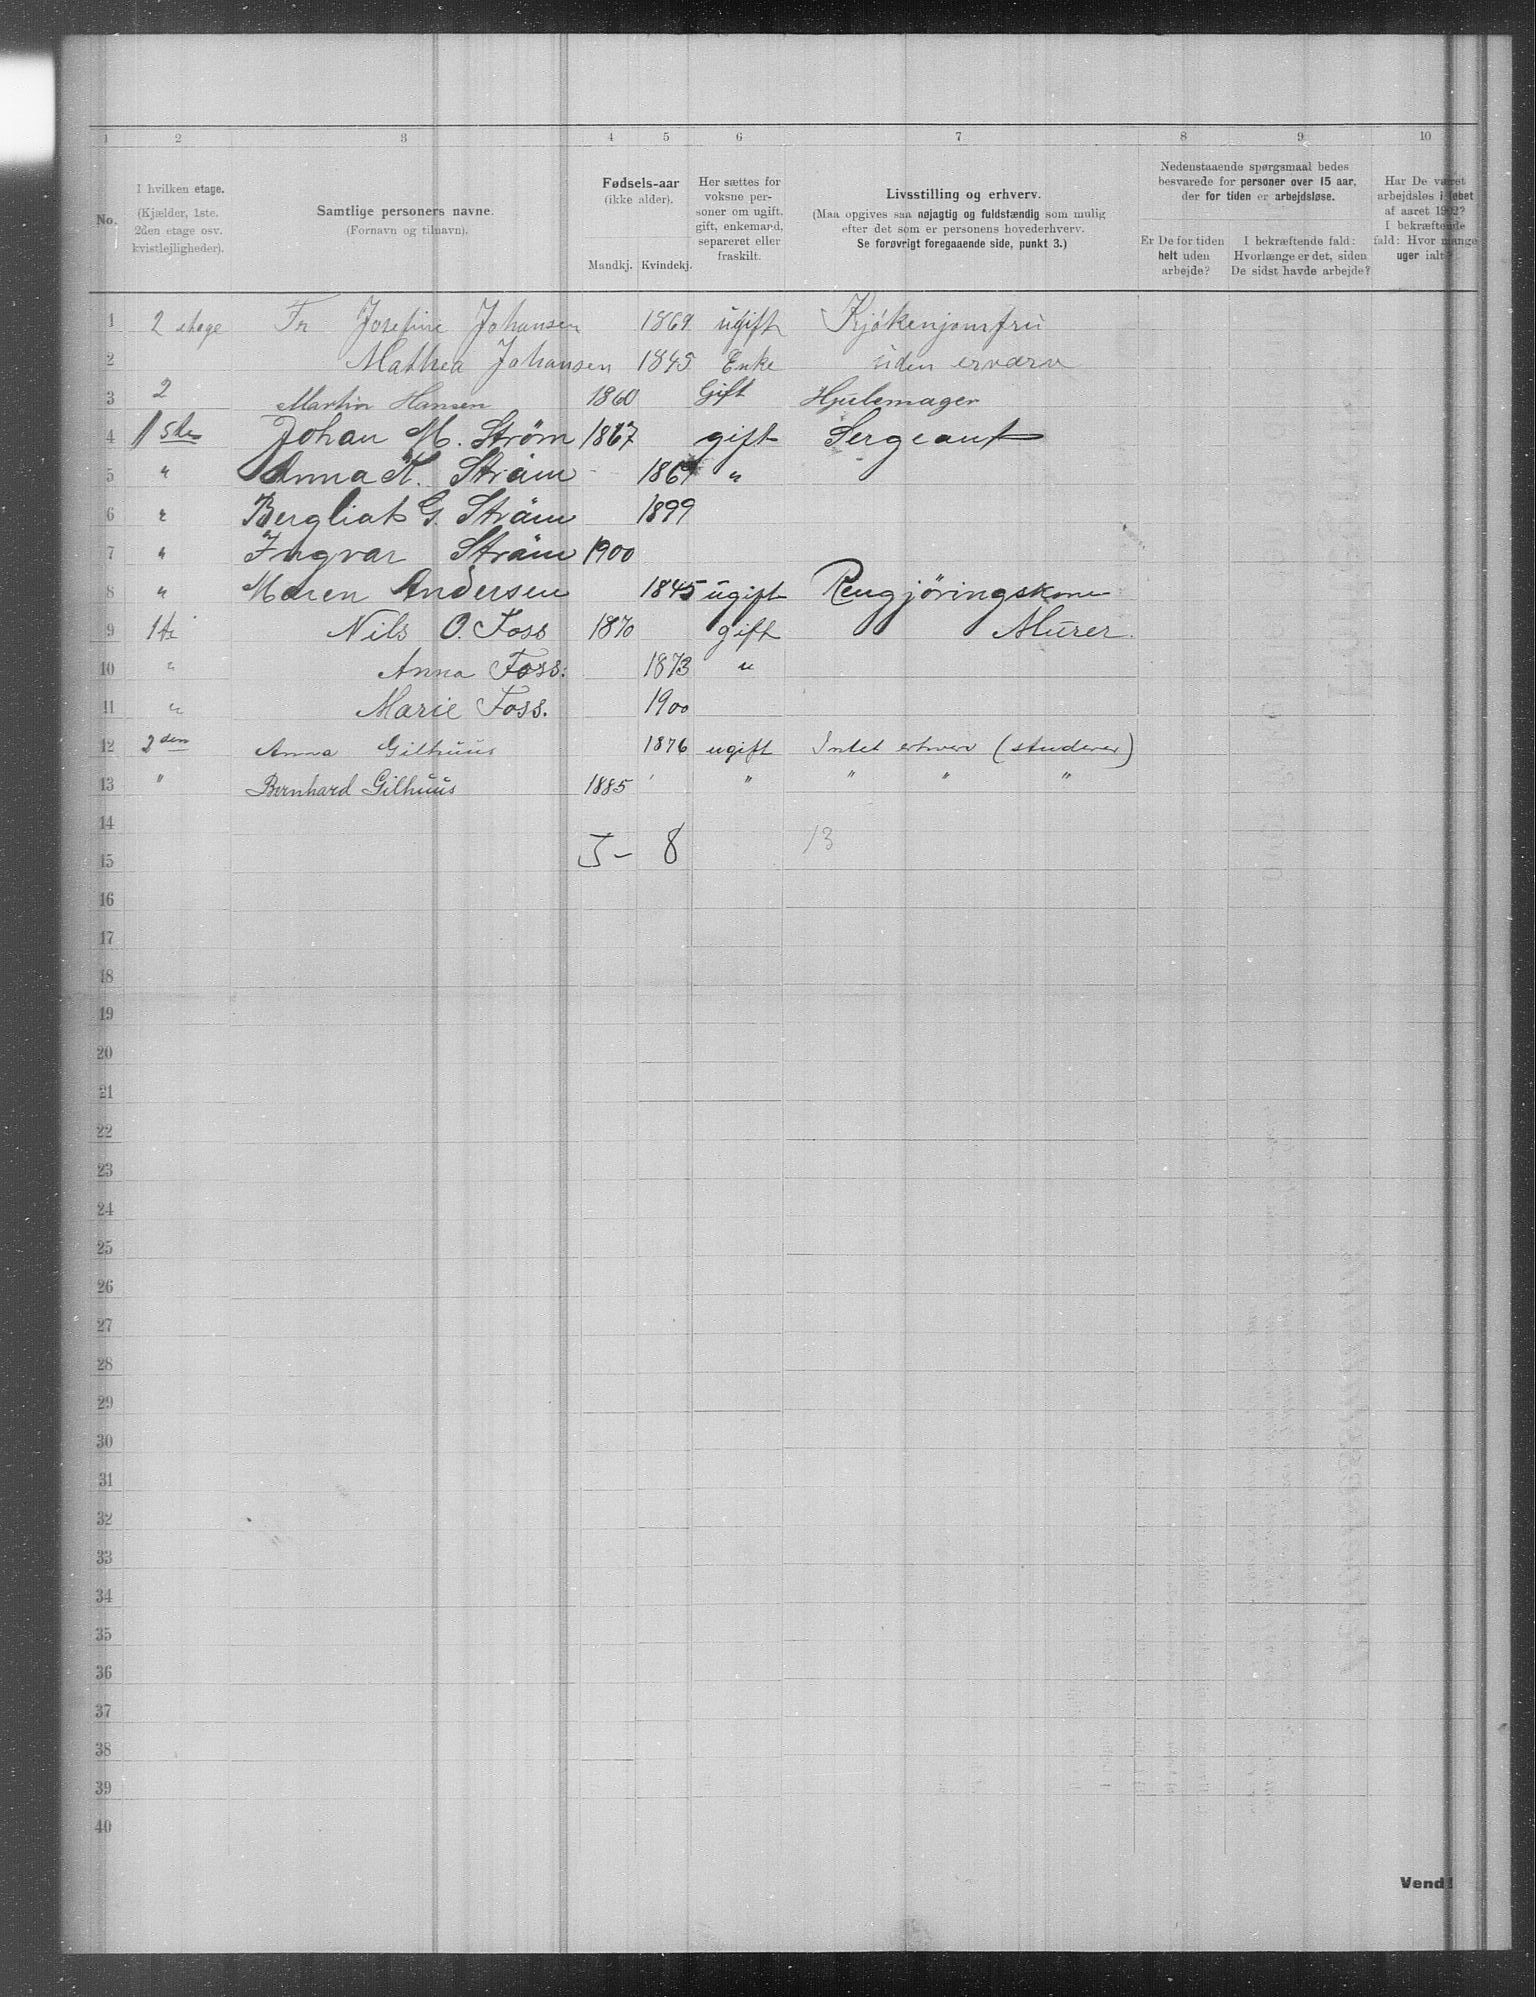 1 2 3 4 5 6 7 8 9 10
No.
I hvilken etage.
(Kjælder, 1ste.
2den etage osv.
kvistlejligheder).
Samtlige personers navne.
(Fornavn og tilnavn).
Fødsels-aar
(ikke alder).
Mandkj. Kvindekj.
Her sættes for
voksne per-
soner om ugift,
gift, enkemand,
separeret eller
fraskilt.
Livsstilling og erhverv.
(Maa opgives saa nøjagtig og fuldstændig som mulig
efter det som er personens hovederhverv.
Se forøvrigt foregaaende side, punkt 3.)
Nedenstaaende spørgsmaal bedes
besvarede for personer over 15 aar,
der for tiden er arbejdsløse.
Er De for tiden
helt uden
arbejde?
I bekræftende fald:
Hvorlænge er det, siden
De sidst havde arbejde?
Har De været
arbejdsløs i løbet
af aaret 1902?
I bekræftende
fald: Hvor mange
uger ialt?
1 2 etage Fr Josefine Johansen 1869 ugift Kjøkenjomfru
2 Mathea Johansen 1845 Enke uden erværv
3 2 Martin Hansen 1860 Gift Hjulemager
4 1ste Johan M. Strøm 1867 gift Sergeant
5 " Anna K. Strøm 1867 "
6 " Bergliot G. Strøm 1899
7 " Ingvar Strøm 1900
8 " Maren Andersen 1845 ugift Rengjøringskone
9 1ste Nils O. Foss 1870 gift Murer.
10 " Anna Foss: 1873 "
11 " Marie Foss. 1900
12 2den Anna Gilhuus 1876 ugift Intet erhverv (studerer)
13 " Bernhard Gilhuus 1885 " " " "
14
15 5 - 8 13
16
17
18
19
20
21
22
23
24
25
26
27
28
29
30
31
32
33
34
35
36
37
38
39
40
Vend!